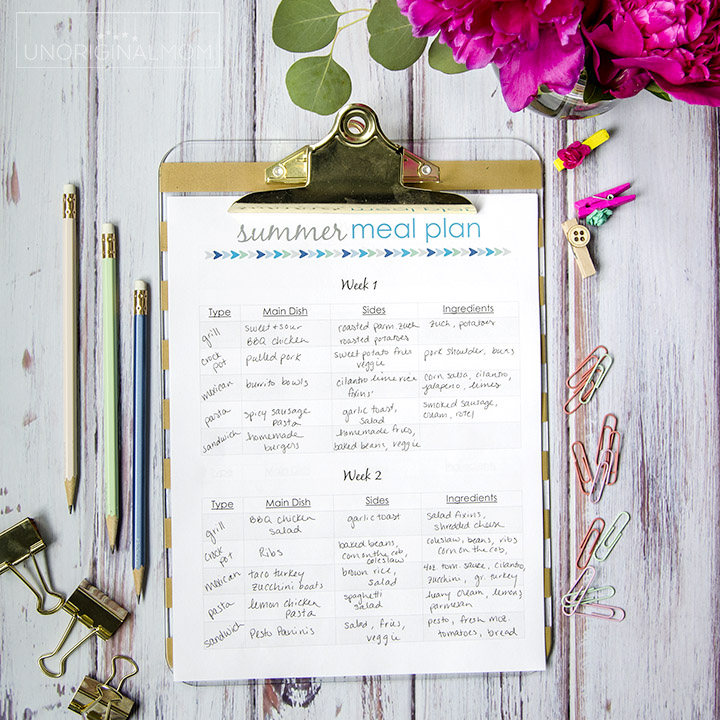 UNORIGINAL MOM
summer meal plan
Week 1
Type Main Dish Sides Ingredients
grill sweet + sour BBQ chicken roasted parm. zuch roasted potatoes zuch, potatoes
crock pot pulled pork sweet potato fries veggie pork shoulder, buns
mexican burrito bowls cilantro lime rice fixins' corn salsa, cilantro, jalapeno, limes
pasta spicy sausage pasta garlic toast, salad smoked sausage, cream, rotel
sandwich homemade burgers homemade fries, baked beans, veggie
Week 2
Type Main Dish Sides Ingredients
grill BBQ chicken salad garlic toast salad fixins, shredded cheese
crock pot Ribs baked beans, corn on the cob, coleslaw coleslaw, beans, ribs corn on the cob,
mexican taco turkey zucchini boats brown rice, salad 4oz. tom. sauce, cilantro, zucchini, gr. turkey
pasta lemon chicken pasta spaghetti salad heavy cream, lemons parmesan
sandwich Pesto Paninis salad, fries, veggie pesto, fresh moz. tomatoes, bread